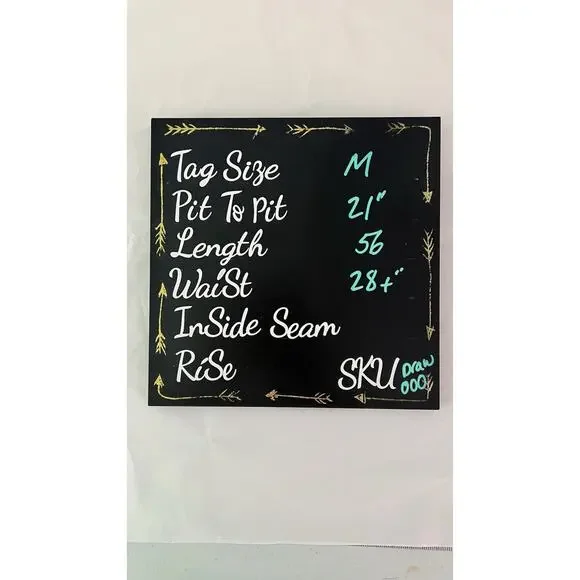 Tag Size M
Pit To Pit 21"
Length 56
Waist 28+"
InSide Seam
RiSe SKU Draw
000